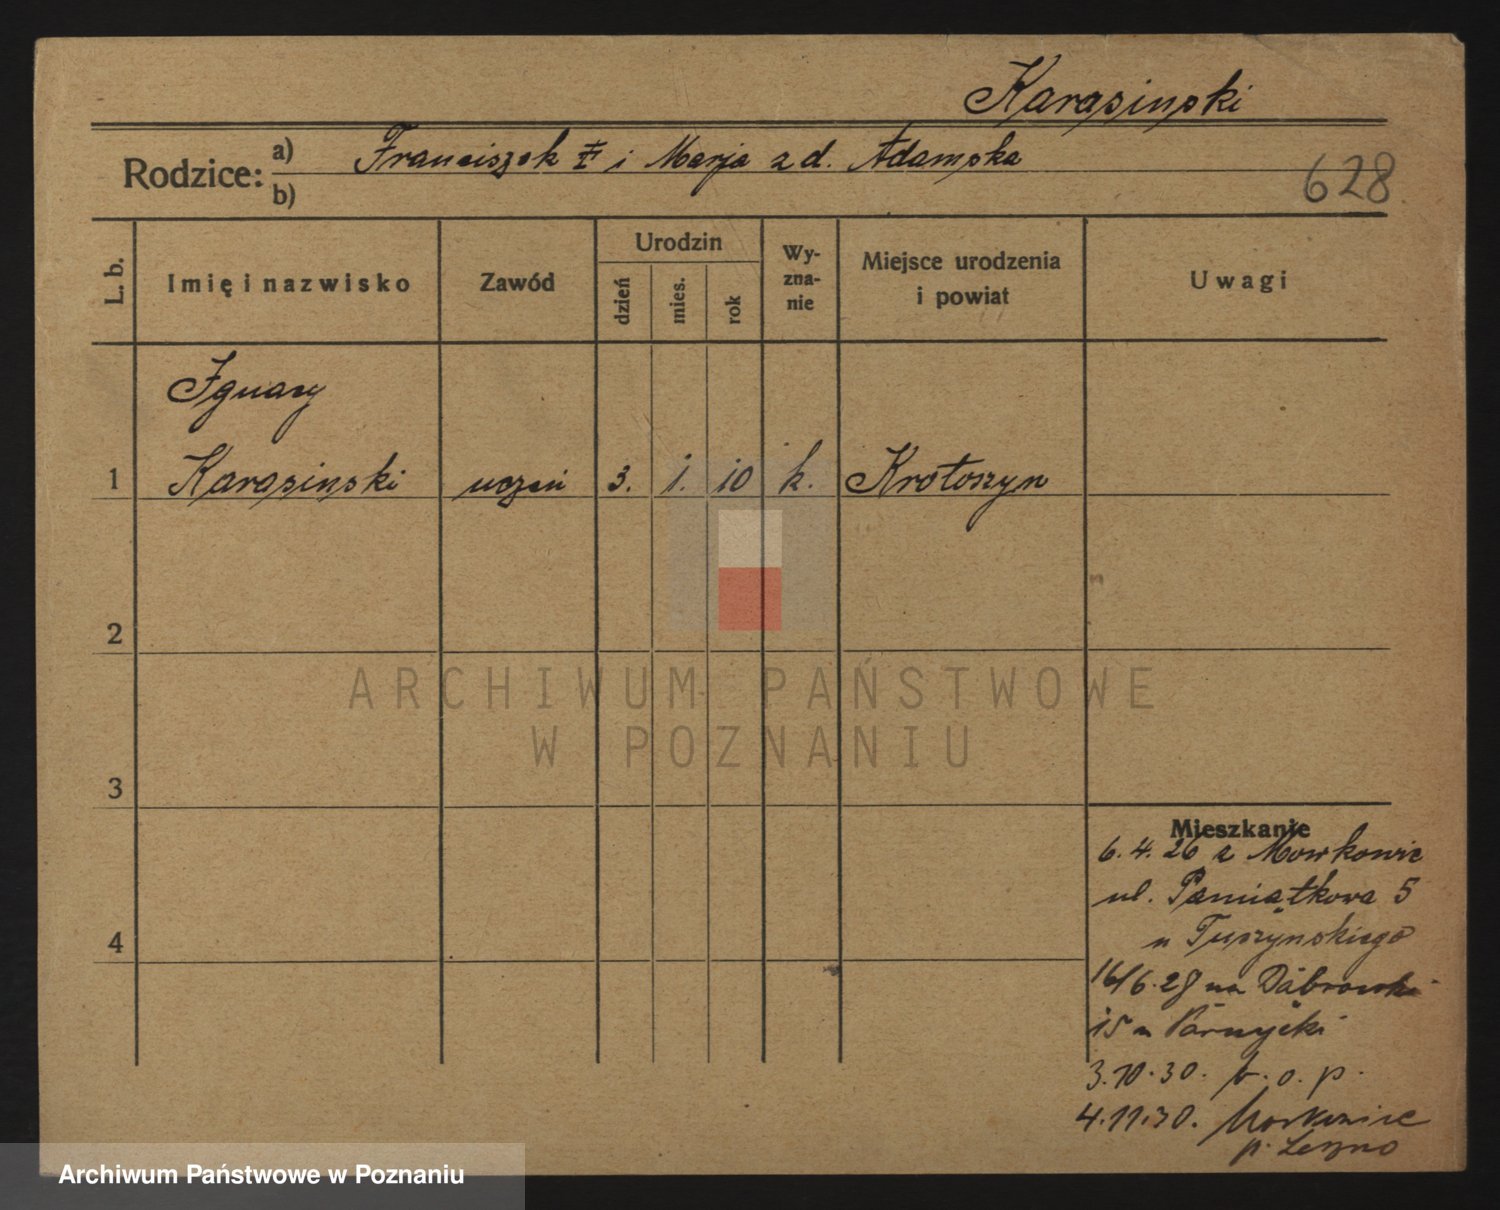 Karasinski
Rodzice:
a) Franciszek i Marja z d. Adamska
b)
628
L. b.
Imię i nazwisko
Zawód
Urodzin
dzień
mies.
rok
Wy-
zna-
nie
Miejsce urodzenia
i powiat
Uwagi
Ignacy
1 Karasinski uczeń 3. 1. 10 k. Krotoszyn
2
3
4
Mieszkanie
6. 4. 26 z
ul. Pamiątkowa 5
u Tuszynskiego
16/6.28 na
15 u
3.10.30.
4.11.30.
p. Leszno
ARCHIWUM PAŃSTWOWE
W POZNANIU
Archiwum Państwowe w Poznaniu